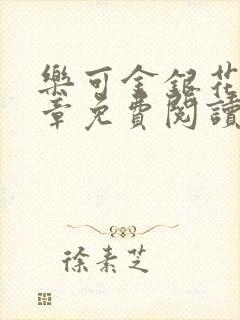 樂可金銀花
章免費閱讀
徐素芝